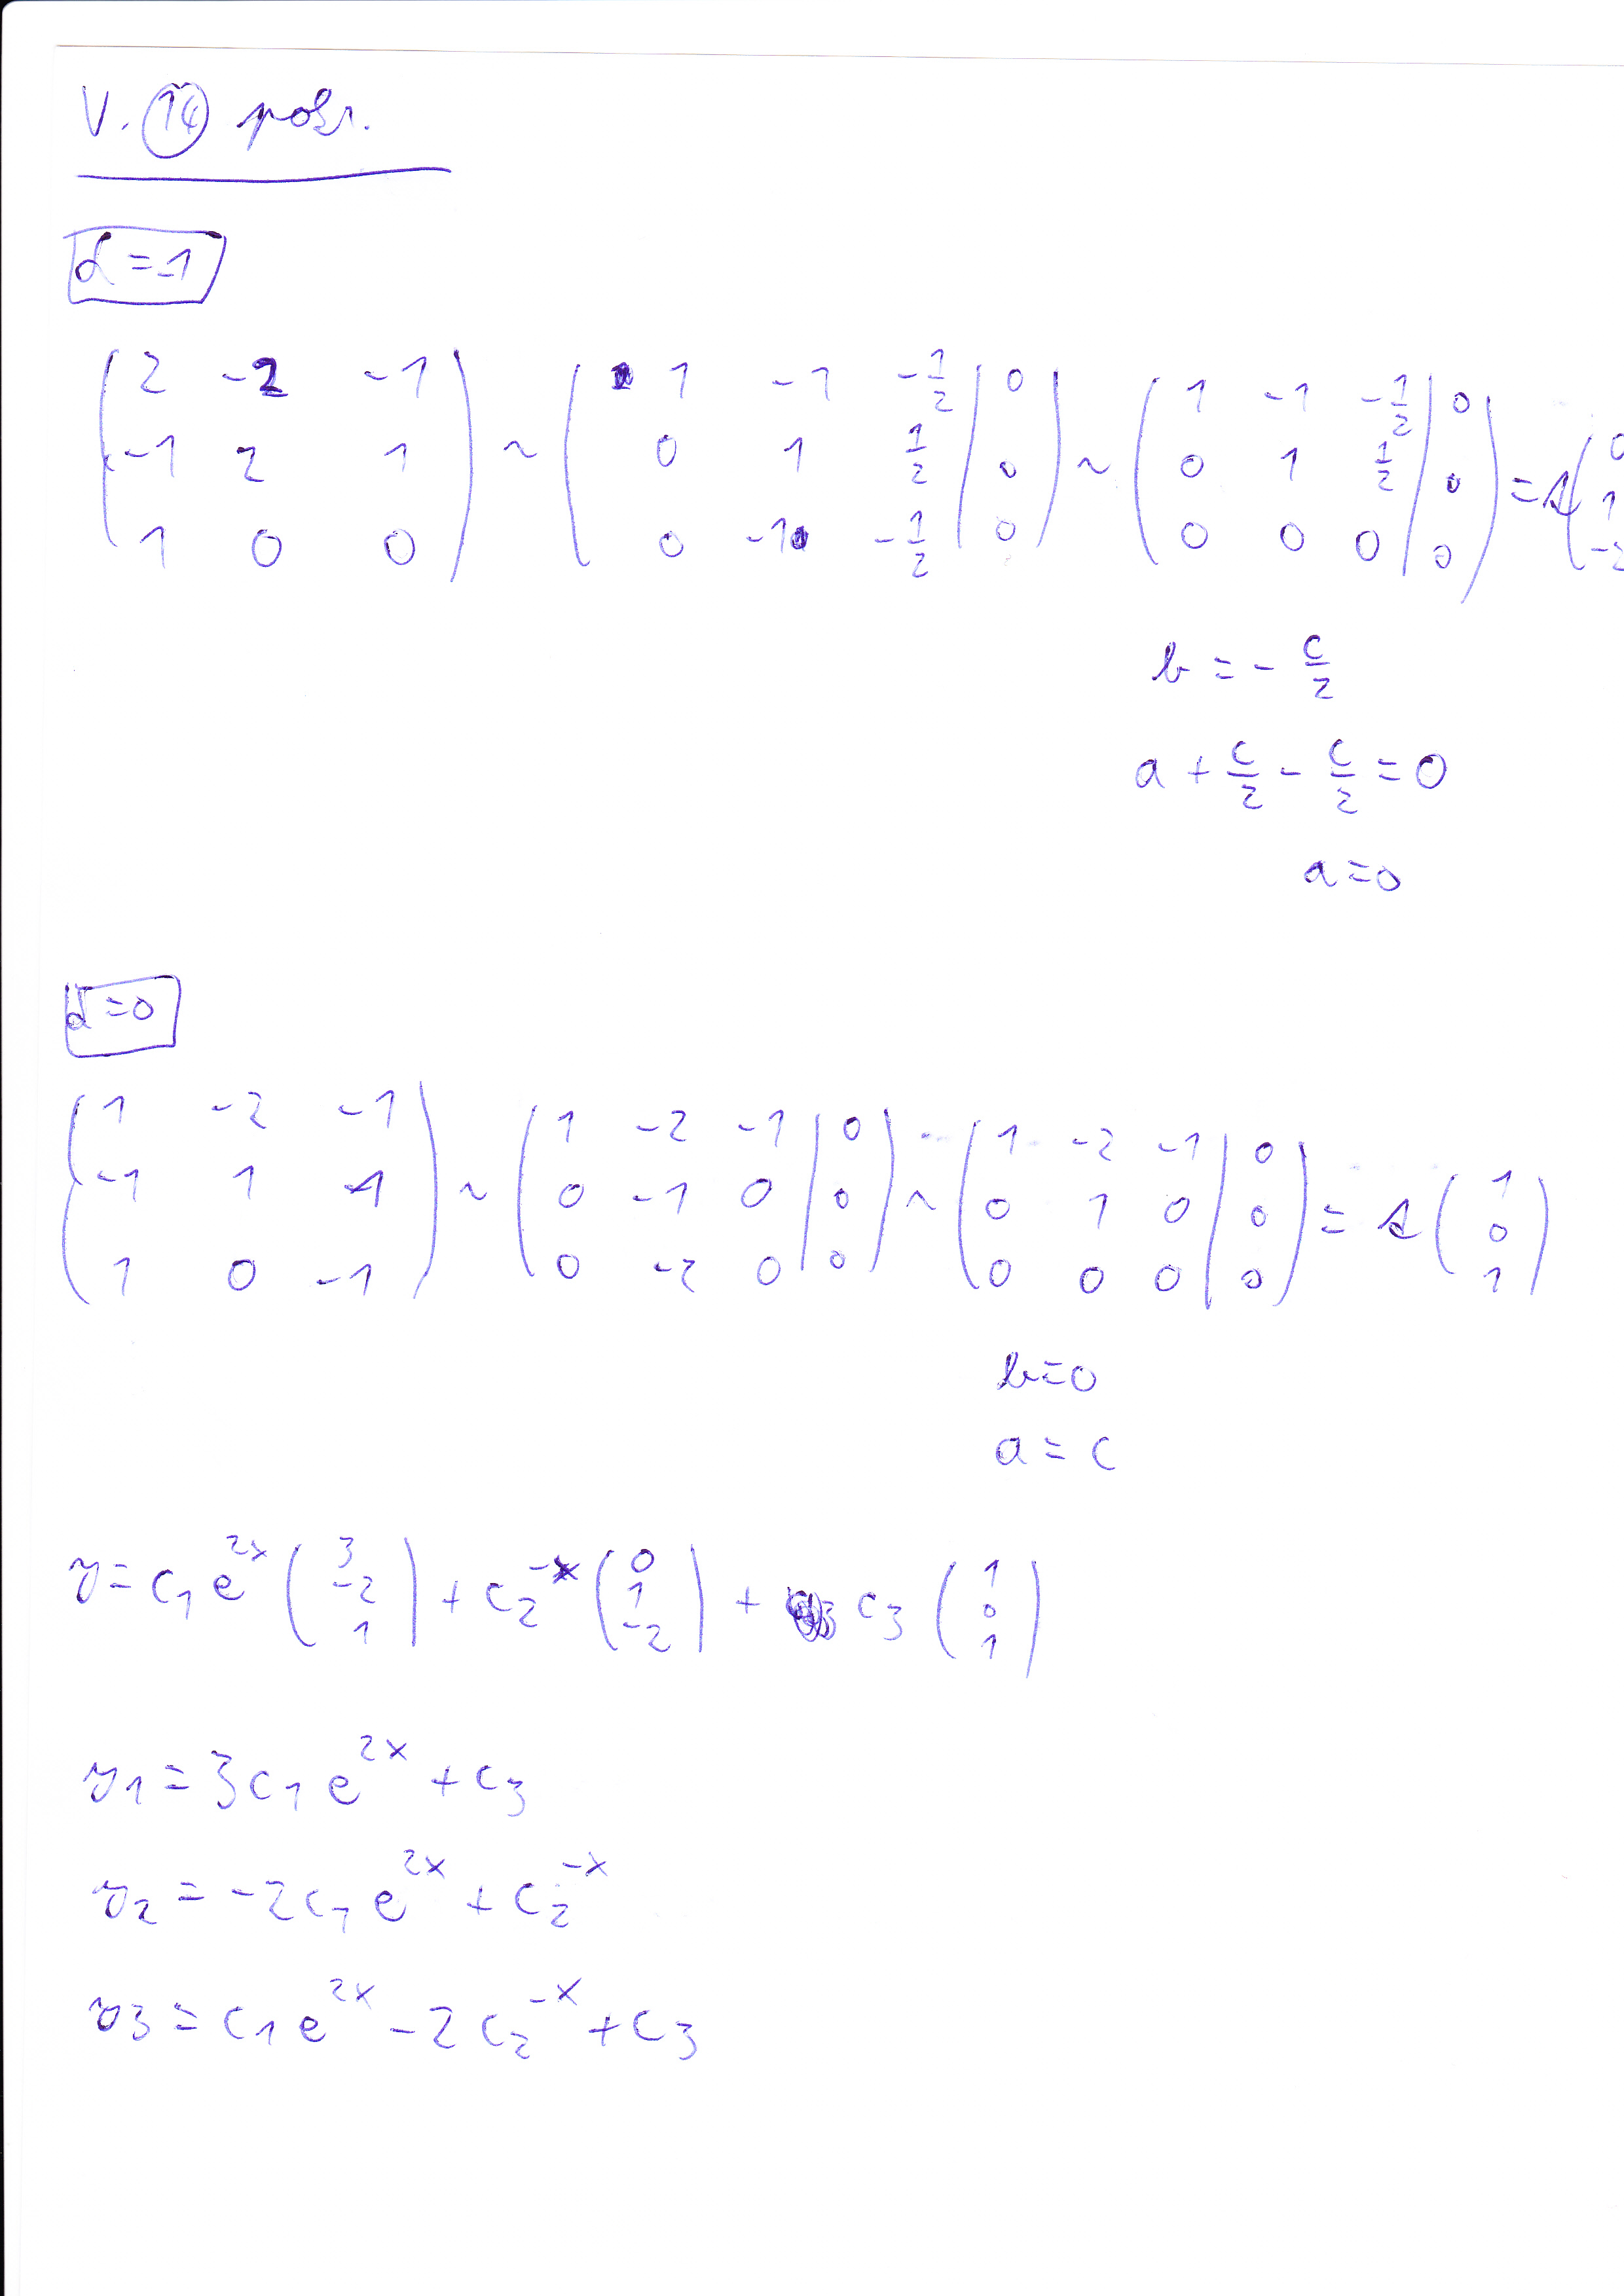 V. 14 pokr.
α = -1
( 2 -2 -1 ; -1 2 1 ; 1 0 0 ) ~ ( 1 -1 -1/2 | 0 ; 0 1 1/2 | 0 ; 0 -1 -1/2 | 0 ) ~ ( 1 -1 -1/2 | 0 ; 0 1 1/2 | 0 ; 0 0 0 | 0 ) = s ( 0 ; 1 ; -2
b = - c/2
a + c/2 - c/2 = 0
a = 0
α = 0
( 1 -2 -1 ; -1 1 1 ; 1 0 -1 ) ~ ( 1 -2 -1 | 0 ; 0 -1 0 | 0 ; 0 -2 0 | 0 ) ~ ( 1 -2 -1 | 0 ; 0 1 0 | 0 ; 0 0 0 | 0 ) = s ( 1 ; 0 ; 1 )
b = 0
a = c
y = c₁ e^{2x} ( 3 ; -2 ; 1 ) + c₂^{-x} ( 0 ; 1 ; -2 ) + c₃ ( 1 ; 0 ; 1 )
y₁ = 3c₁ e^{2x} + c₃
y₂ = -2c₁ e^{2x} + c₂^{-x}
y₃ = c₁ e^{2x} - 2 c₂^{-x} + c₃